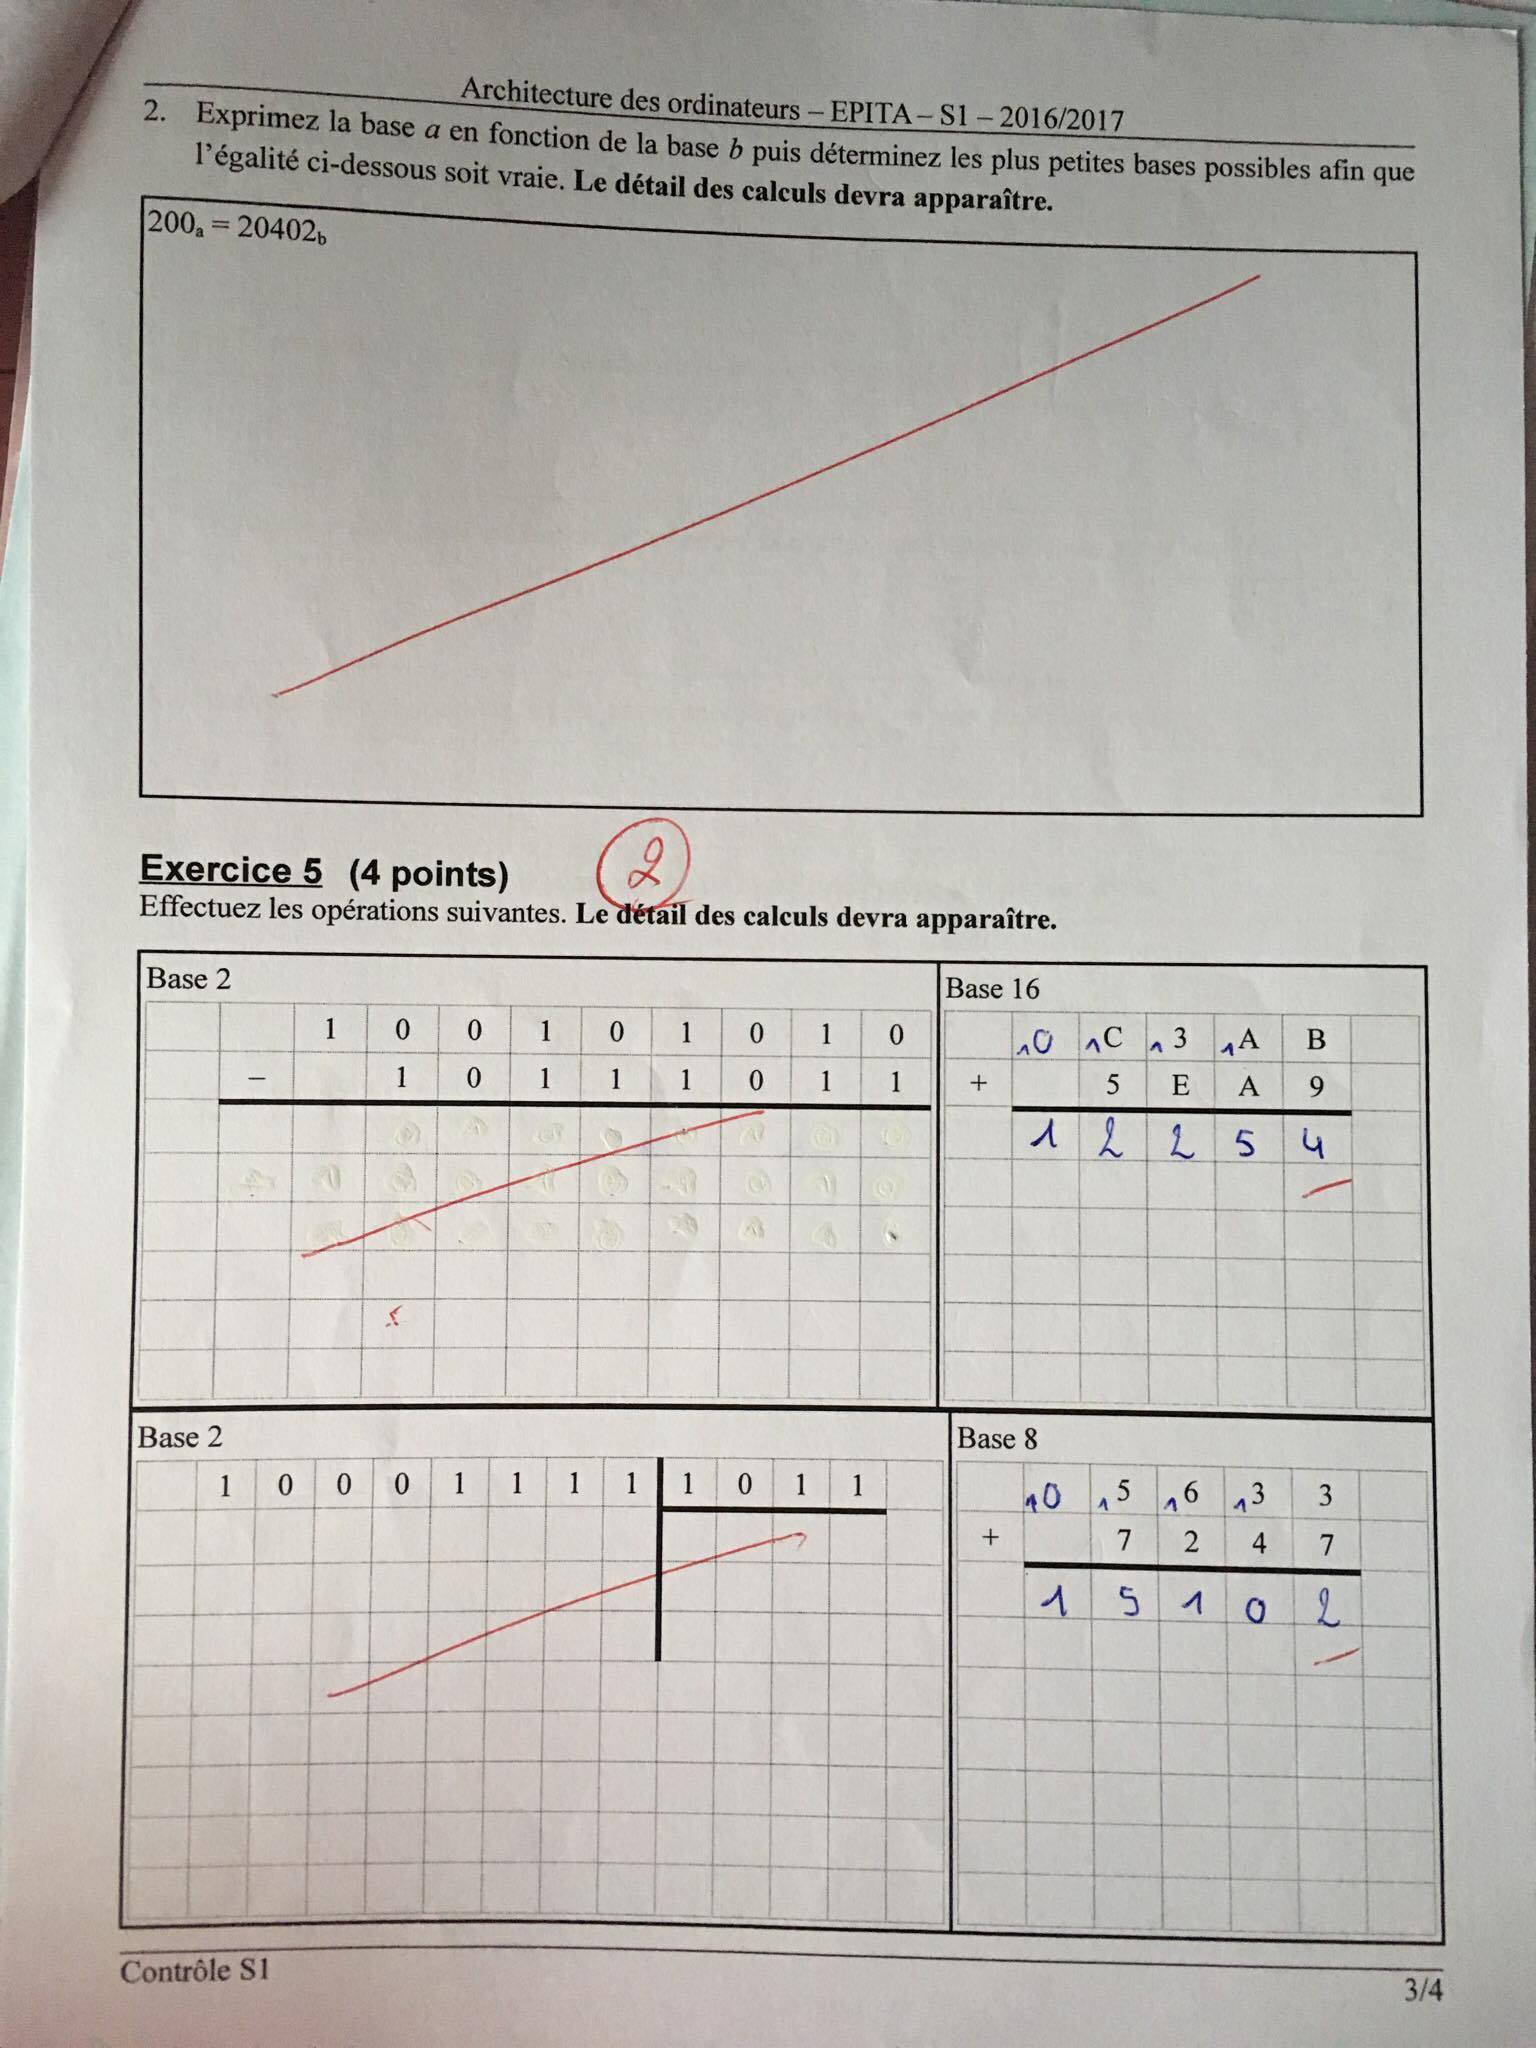 Architecture des ordinateurs – EPITA – S1 – 2016/2017
2. Exprimez la base a en fonction de la base b puis déterminez les plus petites bases possibles afin que
l'égalité ci-dessous soit vraie. Le détail des calculs devra apparaître.
200a = 20402b
Exercice 5 (4 points) 2
Effectuez les opérations suivantes. Le détail des calculs devra apparaître.
Base 2
1 0 0 1 0 1 0 1 0
– 1 0 1 1 1 0 1 1
Base 16
10 1C 13 1A B
+ 5 E A 9
1 2 2 5 4
Base 2
1 0 0 0 1 1 1 1 1 0 1 1
Base 8
10 15 16 13 3
+ 7 2 4 7
1 5 1 0 2
Contrôle S1
3/4